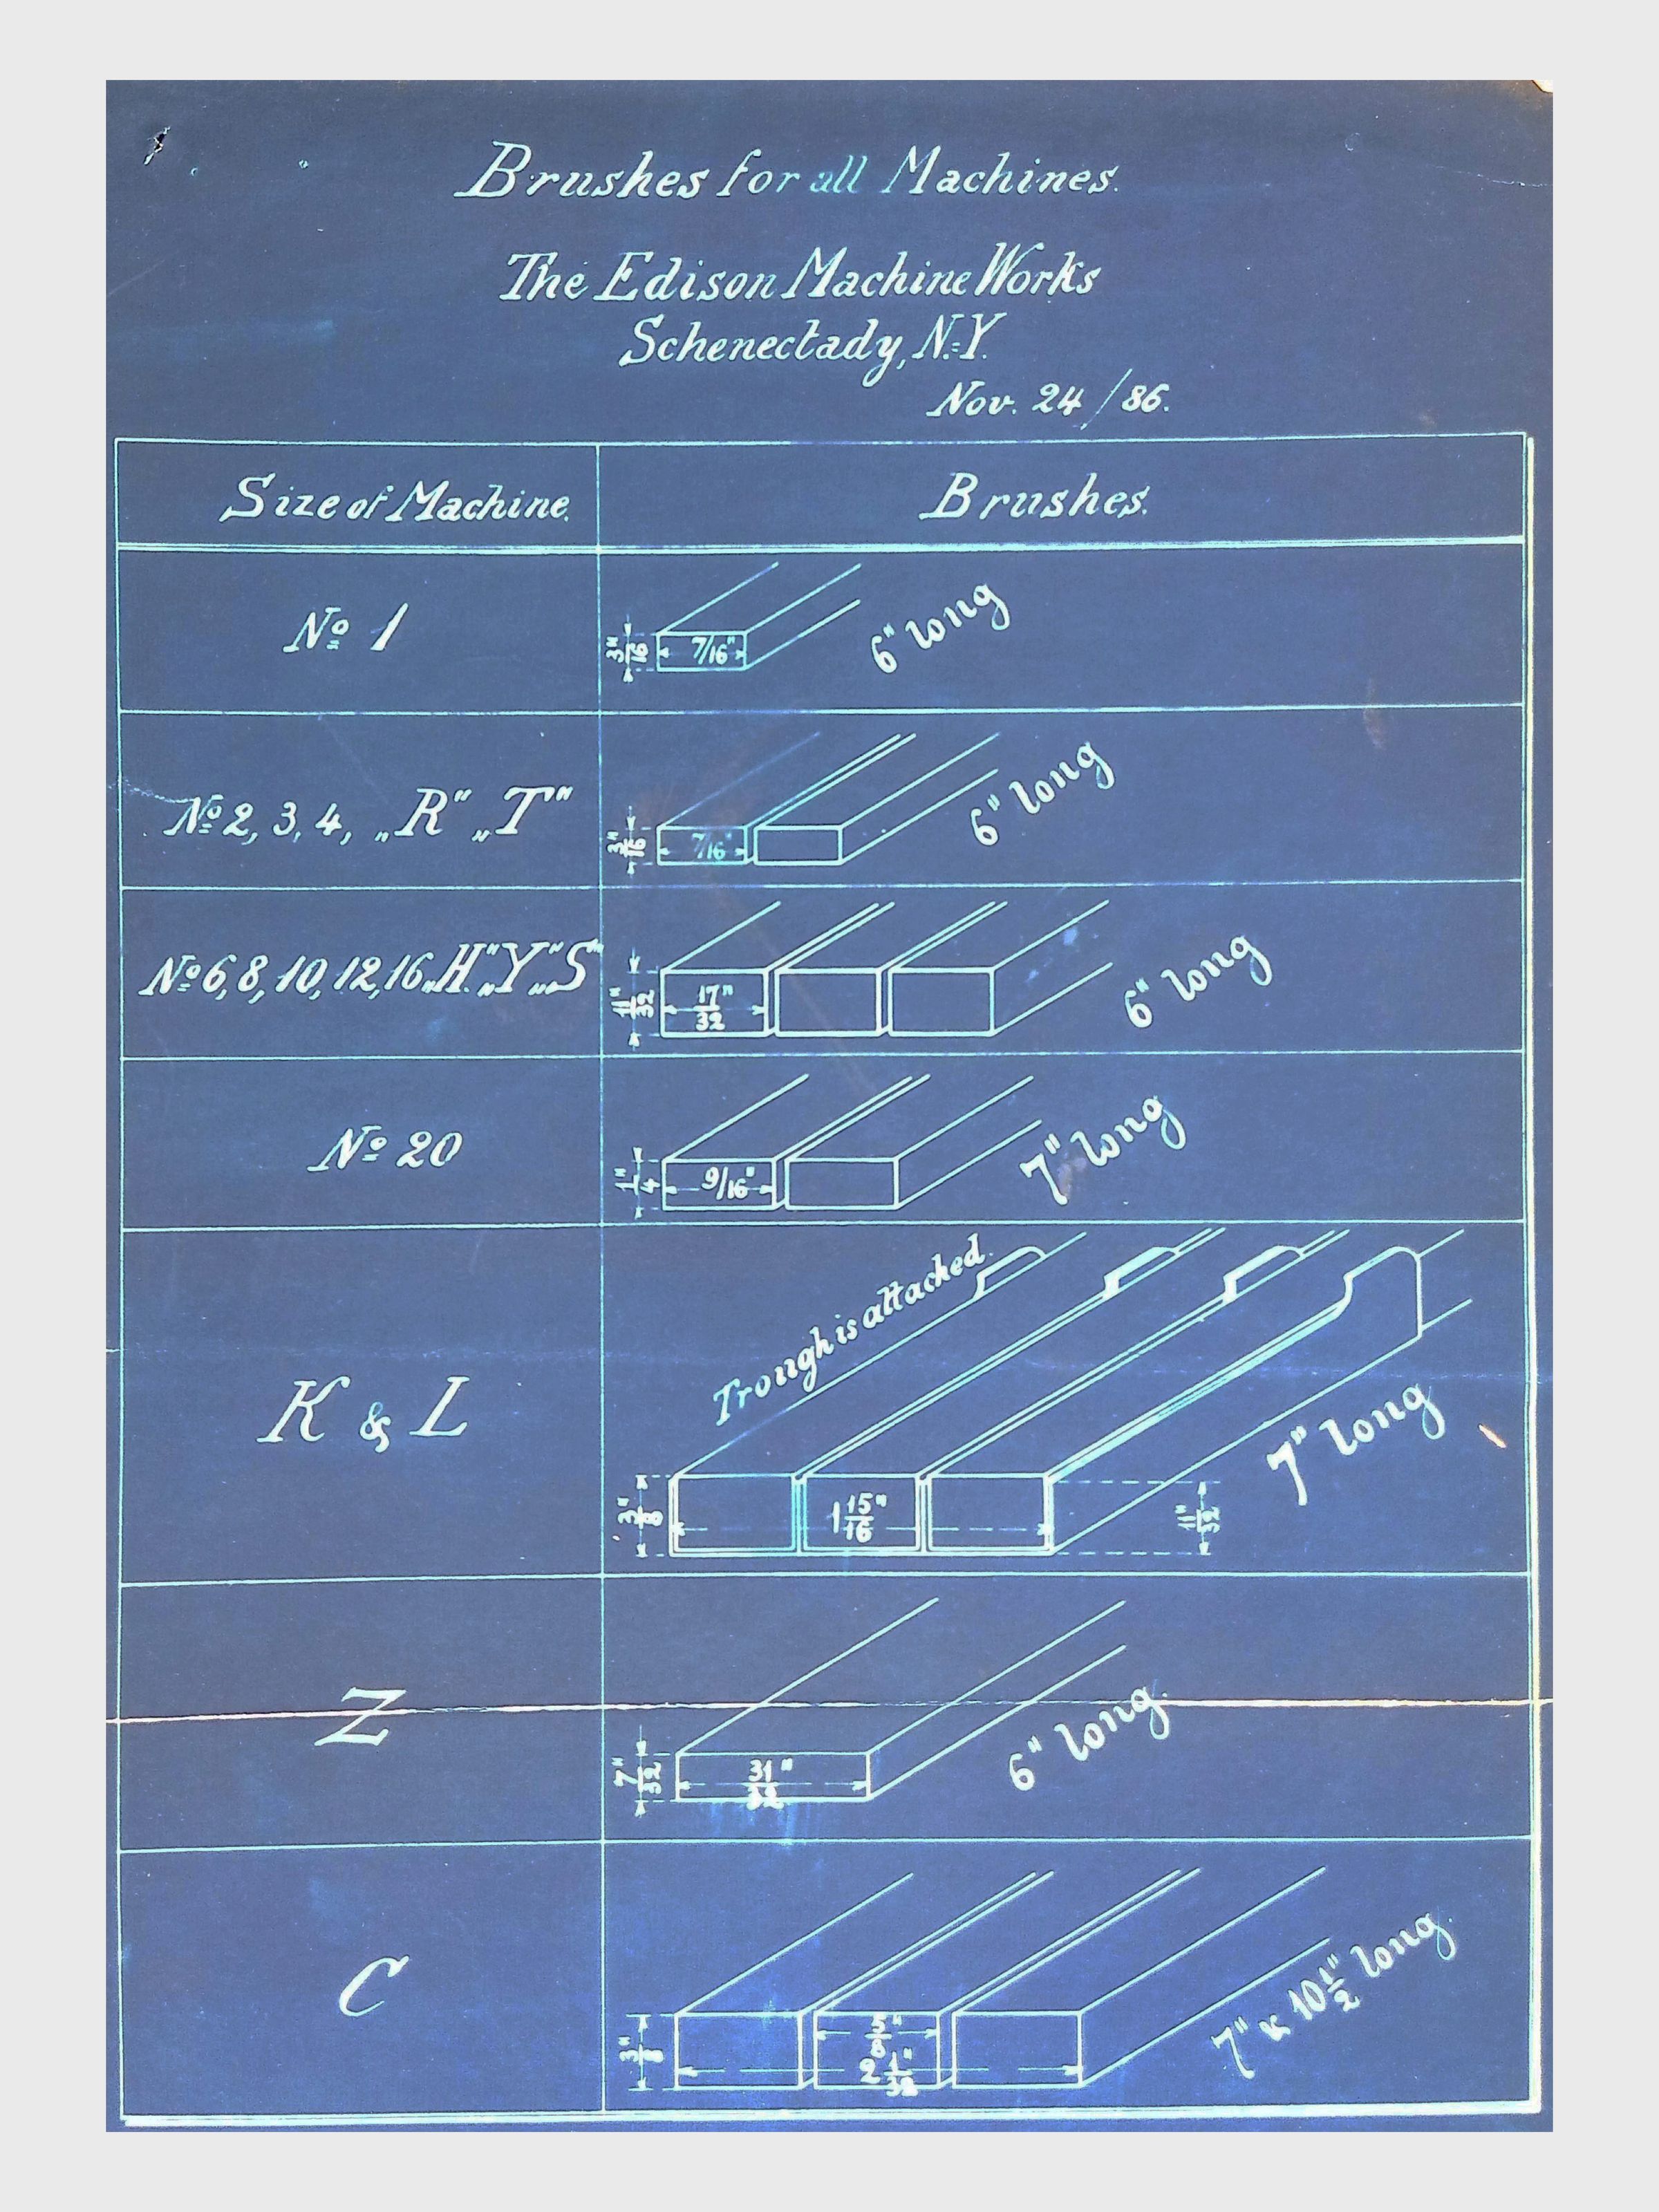 Brushes for all Machines.
The Edison Machine Works
Schenectady, N.Y.
Nov. 24/86.
Size of Machine.
Brushes.
Nº 1
3/16"
7/16"
6" long
Nº 2, 3, 4, „R" „T"
3/16"
7/16"
6" long
Nº 6, 8, 10, 12, 16, „H" „Y" „S"
11/32"
17/32"
6" long
Nº 20
1/4"
9/16"
7" long
K & L
Trough is attached.
3/8"
1 15/16"
11/32"
7" long
Z
7/32"
31/32"
6" long.
C
3/8"
5/8"
2 1/32"
7" & 10 1/2" long.